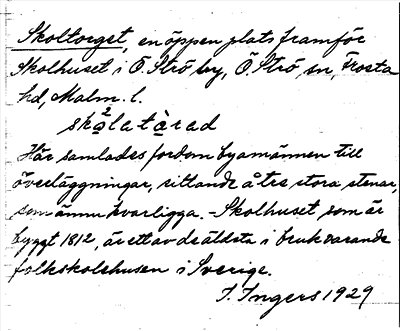 Skoltorget, en öppen plats framför
Skolhuset i Ö. Strö by, Ö. Strö sn, Frosta
hd, Malm. l.
skǻlatàrad
Här samlades fordom byamännen till
överläggningar, sittande å tre stora stenar,
som ännu kvarligga. - Skolhuset som är
byggt 1812, är ett av de äldsta i bruk varande
folkskolehusen i Sverige.
I. Ingers 1929